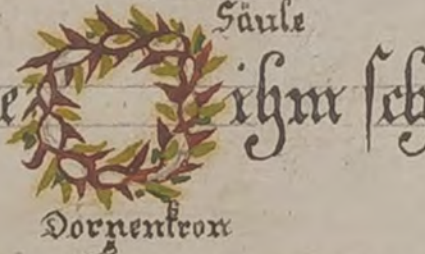 Säule
ihm
Dornenkron